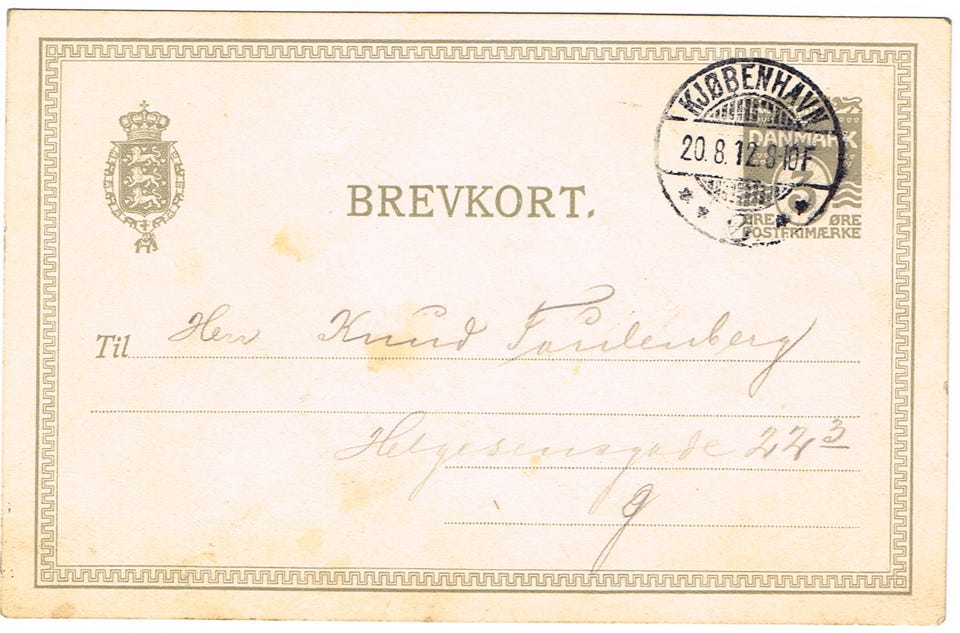 KJØBENHAVN
20.8.12.8-10F
2
DANMARK
3
ØRE ØRE
POSTFRIMÆRKE
BREVKORT.
Til Herr Knud
Helgesensgade 22 3